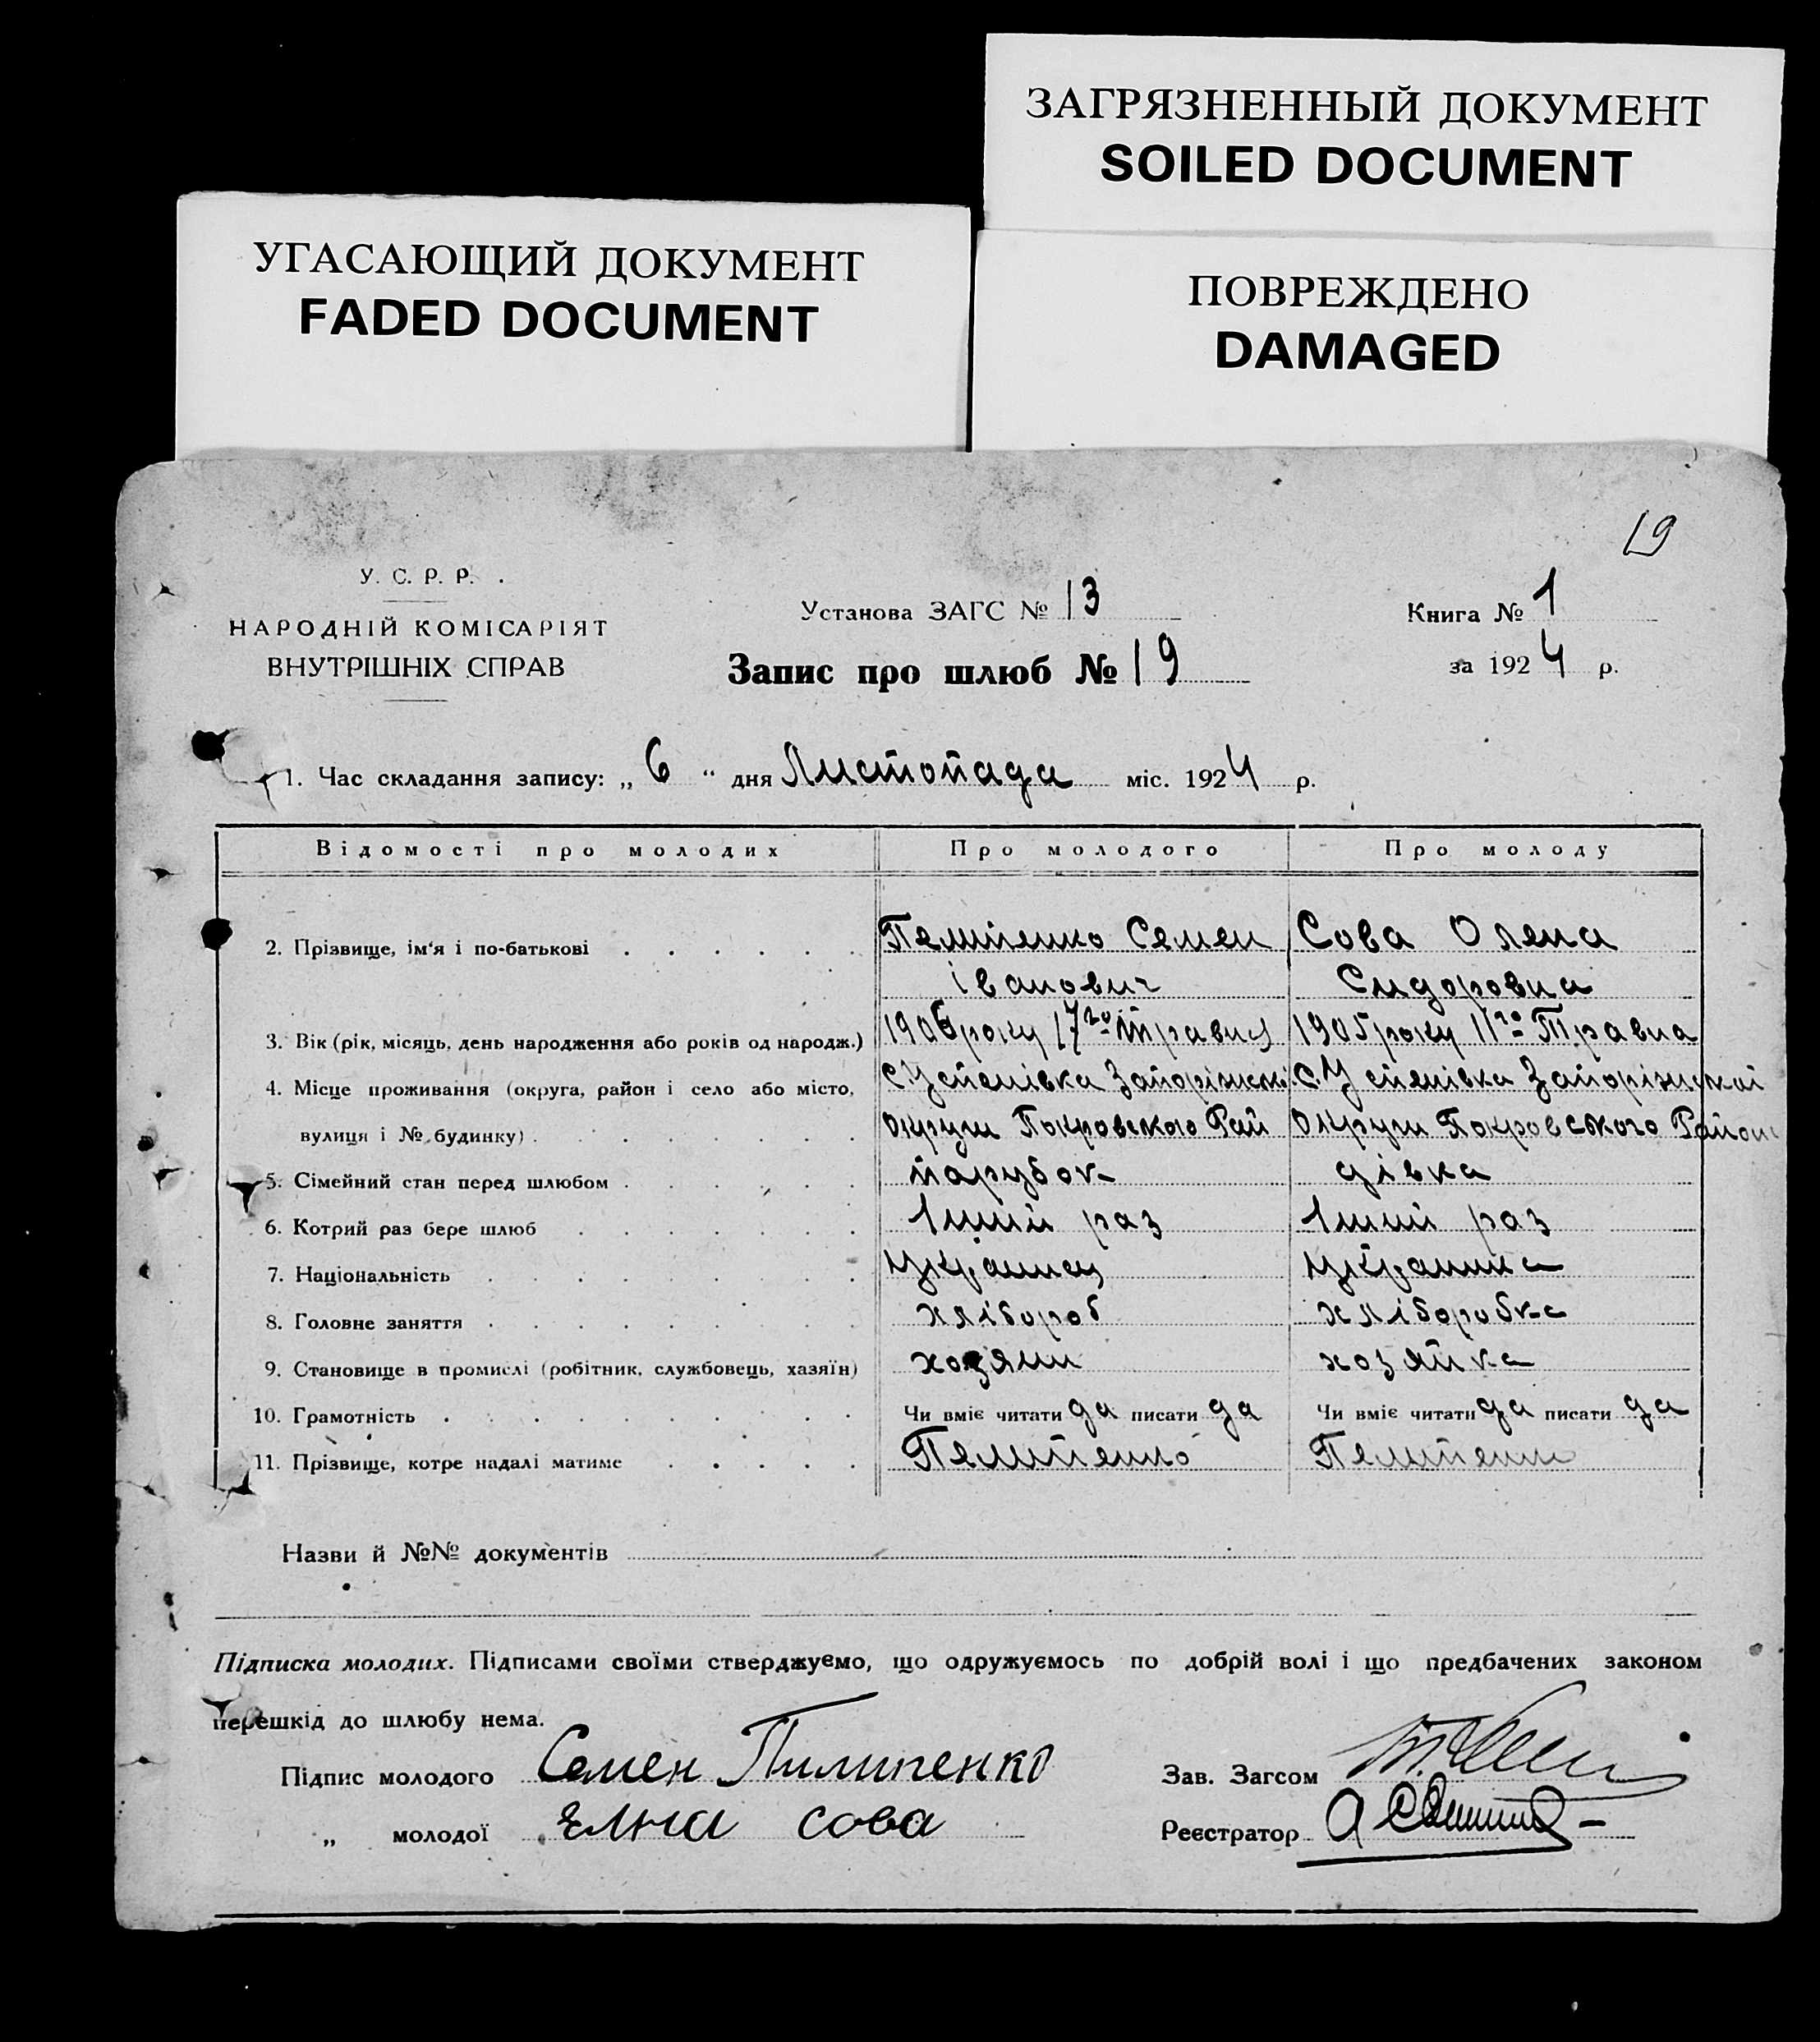 ЗАГРЯЗНЕННЫЙ ДОКУМЕНТ
SOILED DOCUMENT
УГАСАЮЩИЙ ДОКУМЕНТ
FADED DOCUMENT
ПОВРЕЖДЕНО
DAMAGED
19
У. С. Р. Р.
НАРОДНІЙ КОМІСАРІЯТ
ВНУТРІШНІХ СПРАВ
Установа ЗАГС № 13
Запис про шлюб № 19
Книга № 1
за 1924 р.
1. Час складання запису: „ 6 “ дня Листопада міс. 1924 р.
Відомості про молодих Про молодого Про молоду
2. Прізвище, ім'я і по-батькові . . . . . . Пелипенко Семен Сова Олена
Іванович Сидоровна
3. Вік (рік, місяць, день народження або років од народж.) 1906 року 17го травня 1905 року 11го Травна
4. Місце проживання (округа, район і село або місто, С. Успенівка Запоріжської С. Успенівка Запоріжскої
вулиця і № будинку) . . . . . . . Округи Покровського Рай Округи Покровського Району
5. Сімейний стан перед шлюбом . . . . . . парубок дівка
6. Котрий раз бере шлюб . . . . . . . 1ший раз 1ший раз
7. Національність . . . . . . . . . Українец Українка
8. Головне заняття . . . . . . . . . хлібороб хліборобка
9. Становище в промислі (робітник, службовець, хазяїн) хозяин хозяйка
10. Грамотність . . . . . . . . . . Чи вміє читати да писати да Чи вміє читати да писати да
11. Прізвище, котре надалі матиме . . . . . Пелипенко Пелипенко
Назви й №№ документів
Підписка молодих. Підписами своїми стверджуємо, що одружуємось по добрій волі і що предбачених законом
перешкід до шлюбу нема.
Підпис молодого Семен Пилипенко Зав. Загсом
„ молодої Елна сова Реєстратор